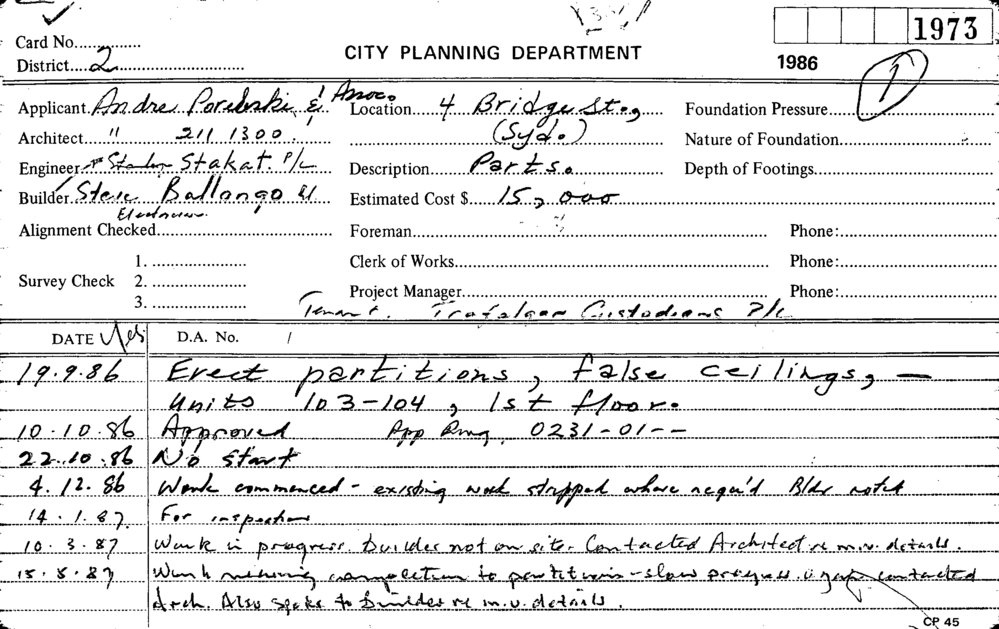 Card No..............
District....2
CITY PLANNING DEPARTMENT
1973
1986
1
Applicant. Andre Porebski & Assoc.
Location 4 Bridge St.,
Foundation Pressure
Architect " 211 1300
(Syd.)
Nature of Foundation
Engineer Stakat. P/L
Description Parts.
Depth of Footings
Builder Steve Ballango
Estimated Cost $ 15,000
Alignment Checked
Foreman
Phone:
Survey Check
1.
2.
3.
Clerk of Works
Phone:
Project Manager
Phone:
Tenant. Trafalgar Custodians P/L
DATE Yes
D.A. No. /
19.9.86 Erect partitions, false ceilings, —
Units 103-104, 1st floor.
10.10.86 Approved App Rmg. 0231-01--
22.10.86 No start
4.12.86 Work commenced - existing work stripped where requ'd Bldr noted
14.1.87. For inspection
10.3.87 Work in progress. Builder not on site. Contacted Architect re m.v. details.
15.5.87 Work nearing completion to partitions - slow progress. Again contacted
Arch. Also spoke to Builder re m.v. details.
CP 45